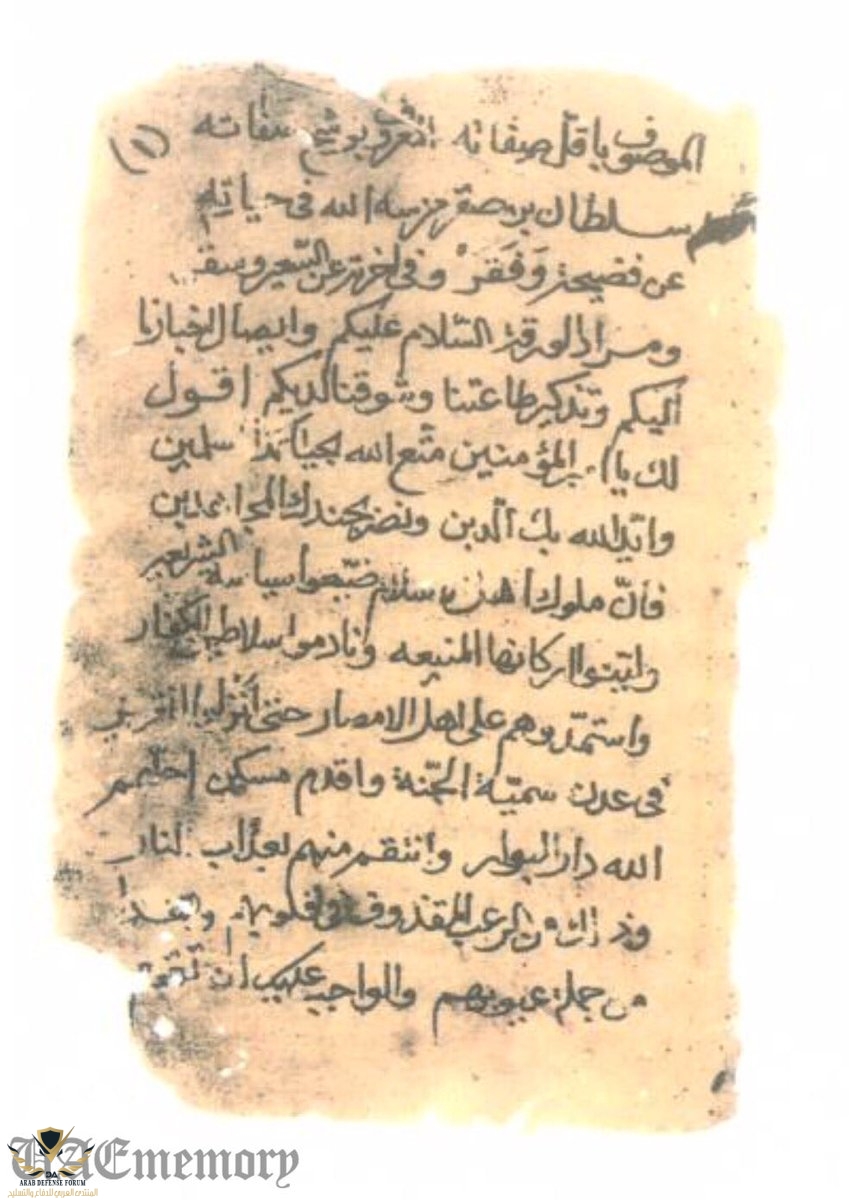 الموصوف باقلّ صفاته المعروف بوشيم سفاته (١)
سلطان بن صقر حرسه الله في حياته
عن فضيحة وَفَقَر وفي اخرته عن السّعير وسقر
ومراد الورقة السّلام عليكم وايصال اخبارنا
اليكم وتذكير طاعتنا وشوقنا لديكم اقول
لك يا امير المؤمنين متّع الله بحياتك المسلمين
وايّد الله بك الّدين ونصر بجندك المجاهدين
فانّ ملوك اهل الاسلام ضيّعوا سياسة الشريعه
اركانها المنيعه ونادموا سلاطين الكفار
واستمدّوهم على اهل الامصار حتى أنزلوا
في عدن سميّة الجنّة واقدم مسكن احلّهم
الله دار البوار وانتقم منهم بعذاب النار
وذلك من الرعب المقذوف في قلوبهم
من جملة عيوبهم والواجب عليك أن تقوم
UAEmemory
DA
ARAB DEFENSE FORUM
المنتدى العربي للدفاع والتسليح